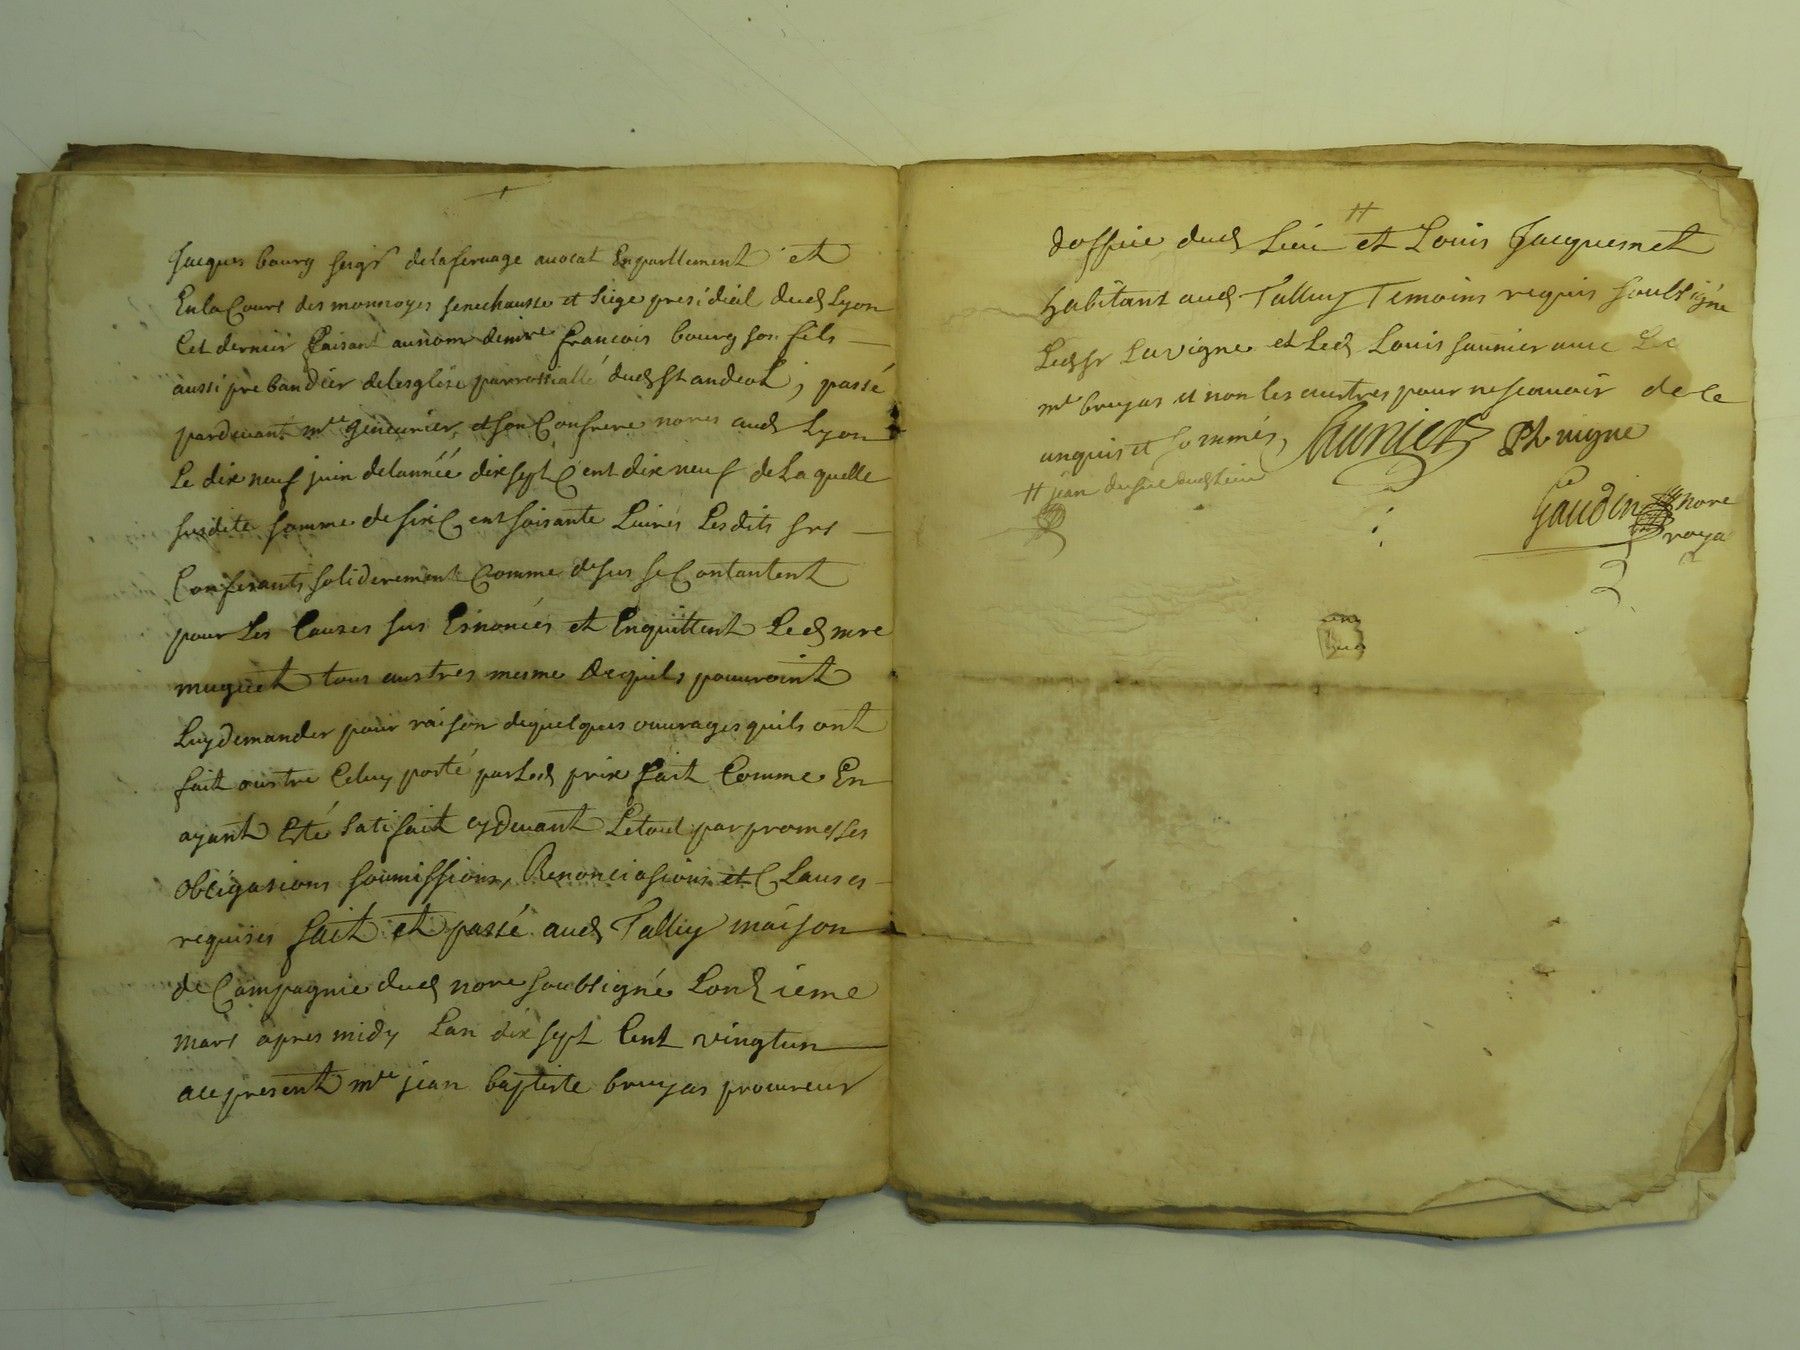 Jacques bourg seigr delafervage auocat Enparllement et
Enla Cours des monnoyes senechausse et siege presidial dud Lyon
Cet dernier faisant aunom demire francois bourg son fils
aussi prebandier delesglise parrossialle dud st andeol, passé
pardeuant mre Gineurier, etson Confrere nores aud Lyon
Le dix neuf juin delannée dix sept Cent dix neuf de La quelle
susdite somme de six Cent soisante Liures Lesdits srs
Confesants soliderement Comme desus se Contantent
pour Les Causes sus Esnoncés et Enquittent Led mre
muguet tous austres mesme dequils pouuroint
Luy demander pour raison dequelques ouurages quils ont
fait oustre Celuy porté par Led prix fait Comme En
ayant Esté satisfait cydeuant Letout par promesses
obligasions soumissions, Renonciasions et Clauses
requises fait et passé aud Talluy maison
de Campagnie dud nore soubsigné Lonzieme
mars apres midy Lan dix sept Cent vingtun
ace present mre jean baptiste bruyas procureur
doffice dud Lieu # et Louis Jacquemet
habitans aud Talluy Temoins requis soubsigne
Led sr Lavigne et Led Louis saunier auec Le
mr bruyas et non les austres pour nescauoir dece
enquis et sommés, Saunier Ph uigne
# jean dud Lieu
Gaudin nore
roya